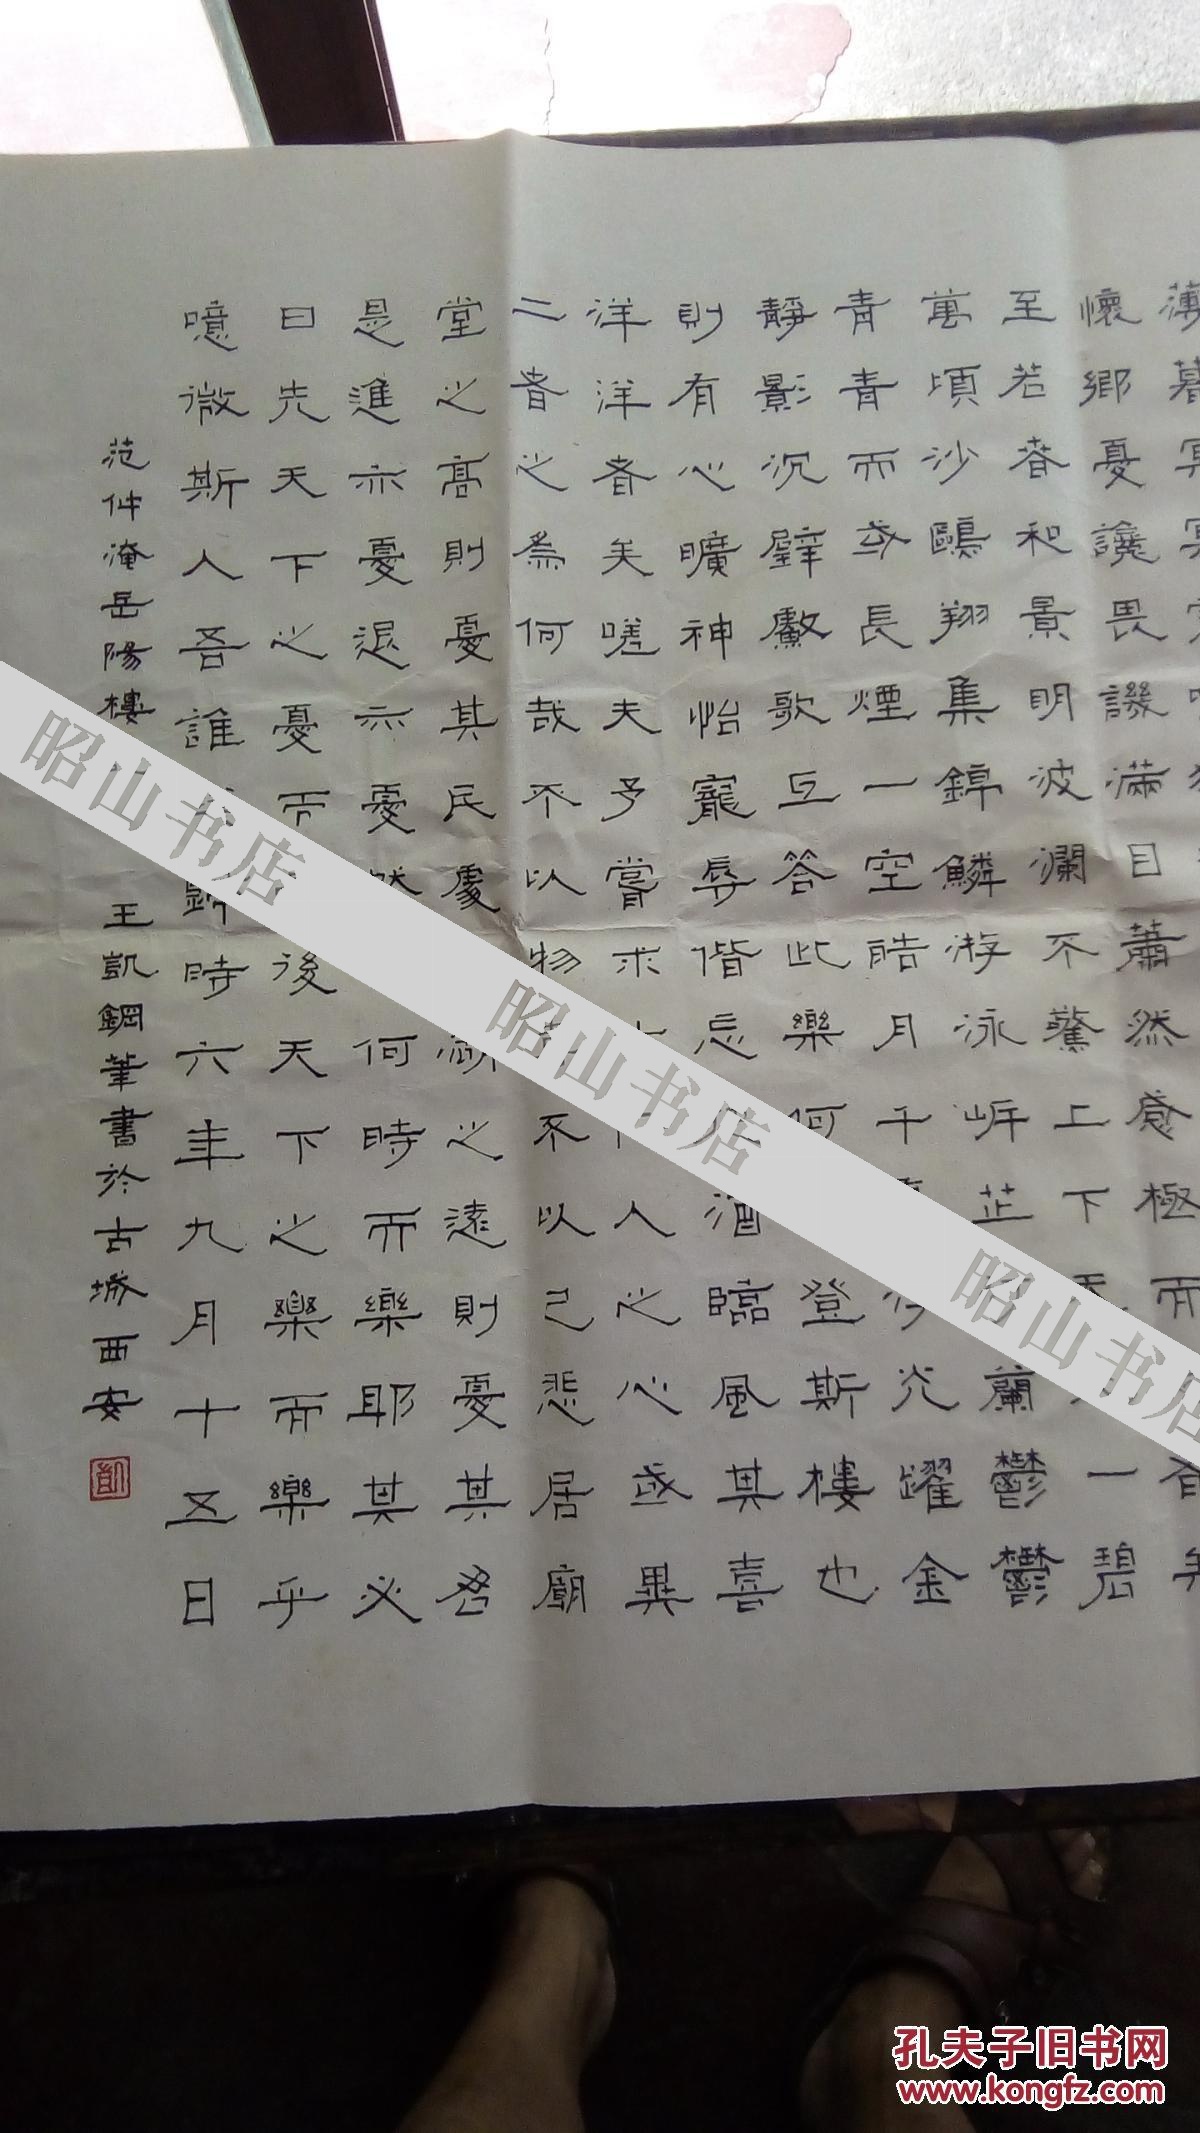 薄暮冥冥
懷鄉憂讒畏譏滿目蕭然感極而
至若春和景明波瀾不驚上下天 一碧
萬頃沙鷗翔集錦鱗游泳岍芷 蘭鬱鬱
青青而或長煙一空皓月千 光躍金
靜影沉璧歡歌互答此樂何 登斯樓也
則有心曠神怡寵辱偕忘 酒臨風其喜
洋洋者矣嗟夫予嘗求 人之心或異
二者之為何哉不以物 不以己悲居廟
堂之高則憂其民處 湖之遠則憂其君
是進亦憂退亦憂然 何時而樂耶其必
曰先天下之憂而 後天下之樂而樂乎
噫微斯人吾誰 歸時六年九月十五日
范仲淹岳陽樓 王凱鋼筆書於古城西安
昭山书店
昭山书店
昭山书店
孔夫子旧书网
www.kongfz.com